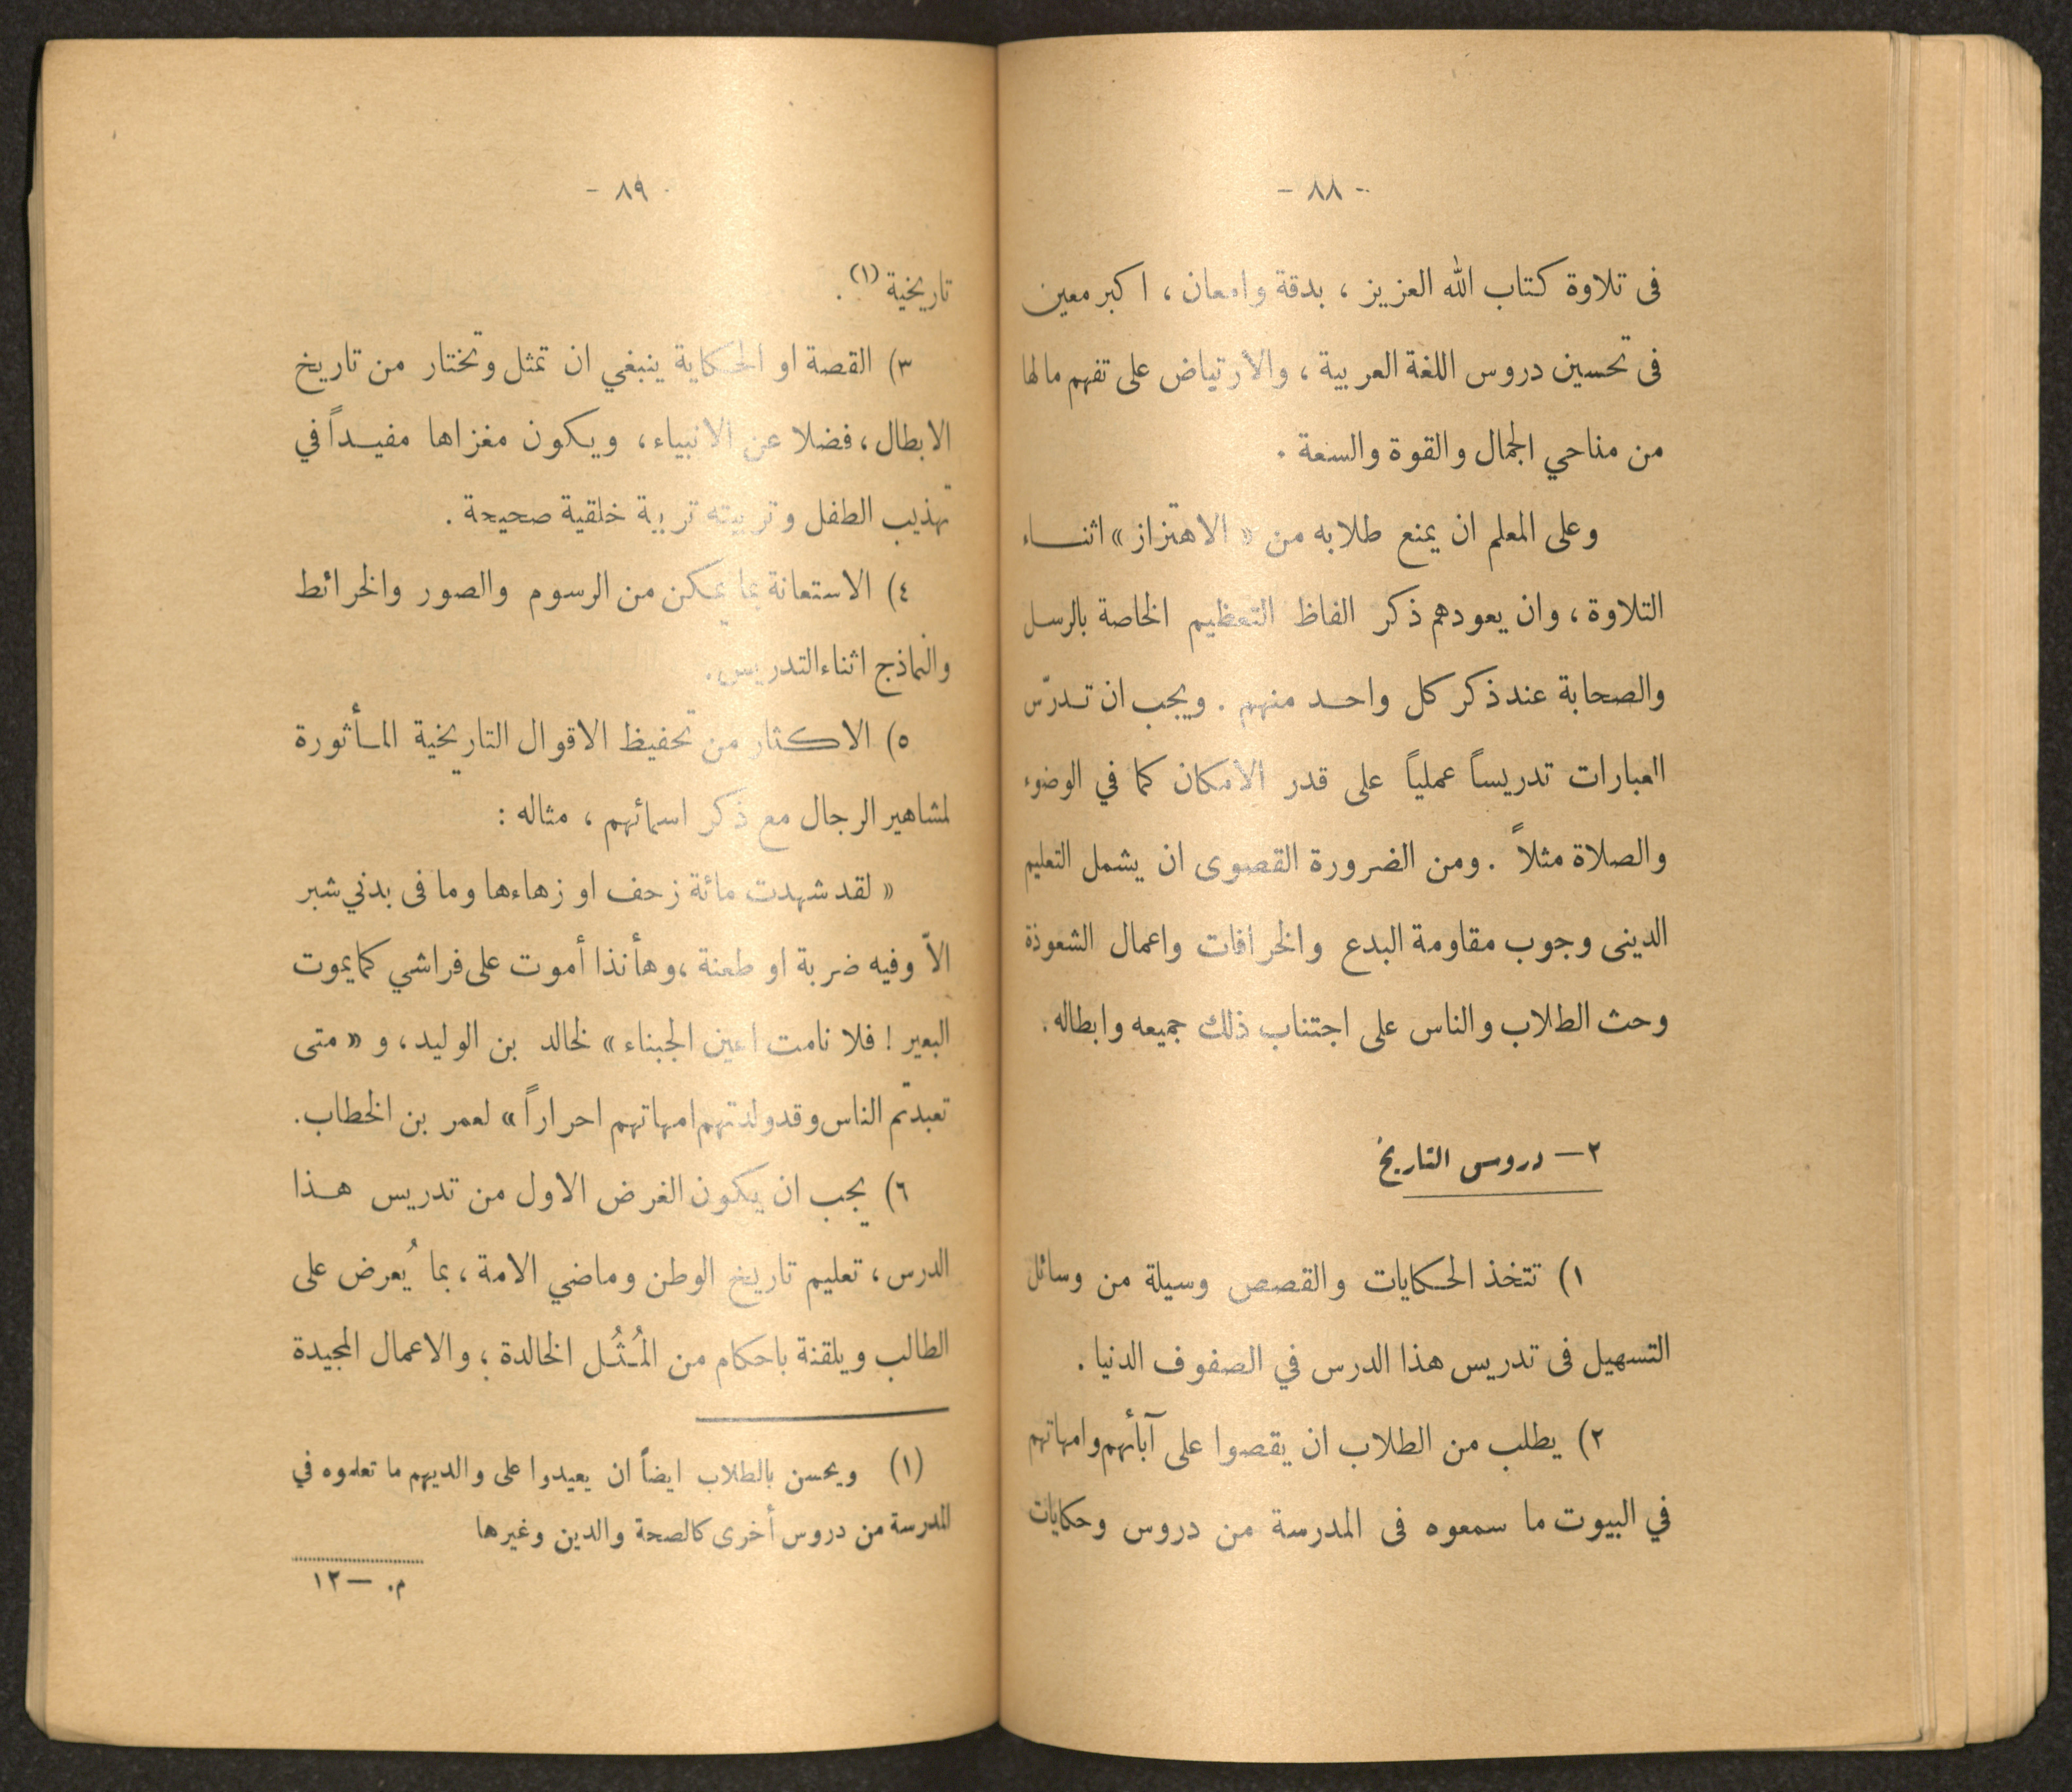 - ٨٨ -
فى تلاوة كتاب الله العزيز ، بدقة وامعان ، اكبر معين
فى تحسين دروس اللغة العربية ، والارتياض على تفهم مالها
من مناحي الجمال والقوة والسعة .
وعلى المعلم ان يمنع طلابه من « الاهتزاز » اثناء
التلاوة ، وان يعودهم ذكر الفاظ التعظيم الخاصة بالرسل
والصحابة عند ذكر كل واحد منهم . ويجب ان تدرّس
العبارات تدريساً عملياً على قدر الامكان كما في الوضوء
والصلاة مثلاً . ومن الضرورة القصوى ان يشمل التعليم
الدينى وجوب مقاومة البدع والخرافات واعمال الشعوذة
وحث الطلاب والناس على اجتناب ذلك جميعه وابطاله .
٢ — دروس التاريخ
١) تتخذ الحكايات والقصص وسيلة من وسائل
التسهيل فى تدريس هذا الدرس في الصفوف الدنيا .
٢) يطلب من الطلاب ان يقصوا على آبأئهم وامهاتهم
في البيوت ما سمعوه فى المدرسة من دروس وحكايات
- ٨٩ -
تاريخية (١) .
٣) القصة او الحكاية ينبغي ان تمثل وتختار من تاريخ
الابطال ، فضلا عن الانبياء ، ويكون مغزاها مفيداً في
تهذيب الطفل وتربيته تربية خلقية صحيحة .
٤) الاستعانة بما يمكن من الرسوم والصور والخرائط
والنماذج اثناء التدريس .
٥) الاكثار من تحفيظ الاقوال التاريخية المأثورة
لمشاهير الرجال مع ذكر اسمائهم ، مثاله :
« لقد شهدت مائة زحف او زهاءها وما فى بدني شبر
الاّ وفيه ضربة او طعنة ، وهأنذا أموت على فراشي كما يموت
البعير ! فلا نامت اعين الجبناء » لخالد بن الوليد ، و « متى
تعبدتم الناس وقد ولدتهم امهاتهم احراراً » لعمر بن الخطاب .
٦) يجب ان يكون الغرض الاول من تدريس هذا
الدرس ، تعليم تاريخ الوطن وماضي الامة ، بما يُعرض على
الطالب ويلقنة باحكام من المُثُل الخالدة ، والاعمال المجيدة
(١) ويحسن بالطلاب ايضاً ان يعيدوا على والديهم ما تعلموه في
المدرسة من دروس أخرى كالصحة والدين وغيرها
م. — ١٢